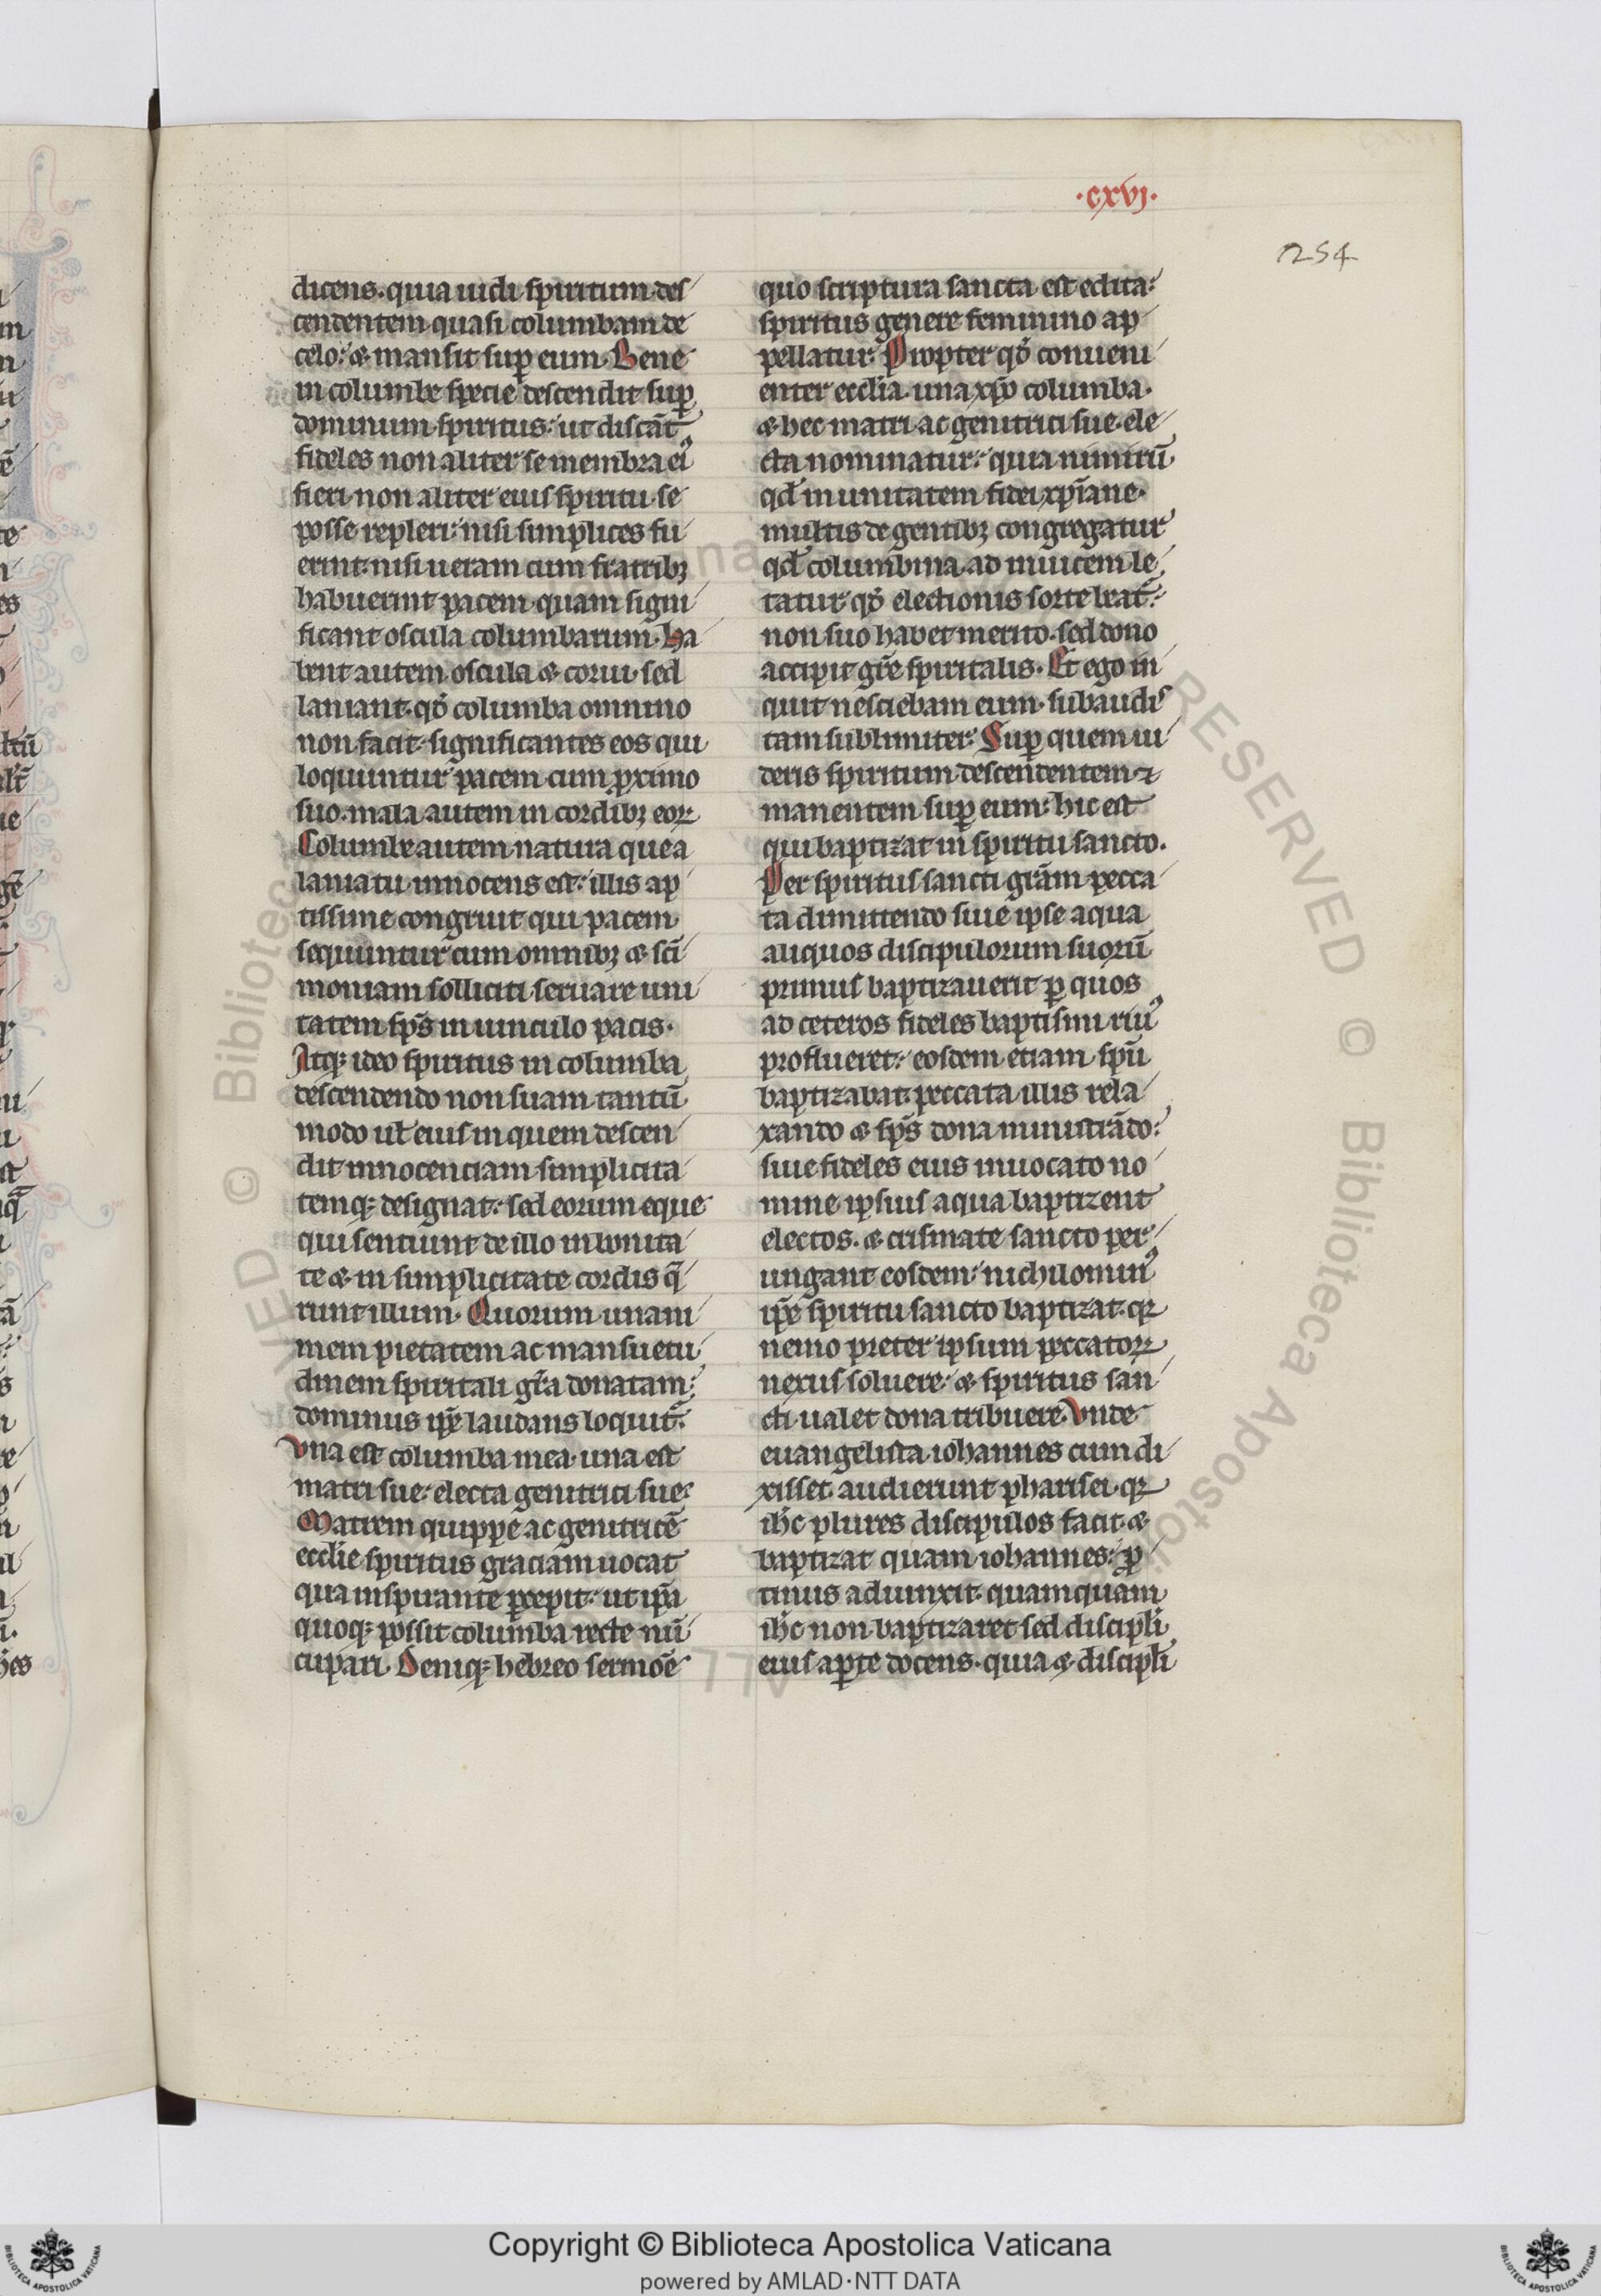 ·cxvj·
1254
dicens. quia uidi spiritum des
cendentem quasi columbam de
celo: & mansit suꝑ eum. Bene
in columbe specie descendit suꝑ
dominum spiritus: ut discãt
fideles non aliter se membra eiꝰ
fieri non aliter eius spiritu se
posse repleri: nisi simplices fu
erint: nisi ueram cum fratribꝫ
habuerint pacem quam signi
ficant oscula columbarum. Ha
bent autem oscula & corui. sed
laniant. qd̾ columba omnino
non facit: significantes eos qui
loquuntur pacem cum ꝓximo
suo. mala autem in cordibꝫ eoꝝ
Columbe autem natura que a
laniatu innocens est: illis ap
tissime congruit qui pacem
sequuntur cum omnibꝫ & sc̃i
moniam solliciti seruare uni
tatem sp̃s in uinculo pacis.
Atqꝫ ideo spiritus in columba
descendendo non suam tantũ
modo ul̃ eius in quem descen
dit innocentiam simplicita
temqꝫ designat: sed eorum eque
qui sentiunt de illo in bonita
te & in simplicitate cordis q̃
runt illum. Quorum unani
mem pietatem ac mansuetu
dinem spiritali gr̃a donatam:
dominus ip̃e laudans loquit̃:
Vna est columba mea. una est
matri sue: electa genitrici sue:
Matrem quippe ac genitricẽ
eccl̃ie spiritus graciam uocat
qua inspirante ꝑcepit: ut ip̃a
quoqꝫ possit columba recte nũ
cupari. Deniqꝫ hebreo sermõe
quo scriptura sancta est edita:
spiritus genere feminino ap
pellatur: Propter qd̾ conueni
enter eccl̃ia. una xp̃o columba.
& hec matri ac genitrici sue. ele
cta nominatur: quia nimirũ
qd̃ in unitatem fidei xp̃iane.
multis de gentibꝫ congregatur
qd̃ columbina. ad inuicem le
tatur qd̾ electionis sorte beat̃:
non suo habet merito. sed dono
accipit gr̃e spiritalis. Et ego in
quit nesciebam eum. subaudis
tam sublimiter: Suꝑ quem ui
deris spiritum descendentem ⁊
manentem suꝑ eum: hic est
qui baptizat in spiritu sancto.
Per spiritus sancti grãm pecca
ta dimittendo siue ipse aqua
aliquos discipulorum suorũ
primus baptizauerit ꝑ quos
ad ceteros fideles baptismi riuꝰ
proflueret: eosdem etiam sp̃u
baptizabat: peccata illis rela
xando & sp̃s dona ministrãdo:
siue fideles eius inuocato no
mine ipsius aqua baptizent
electos. & crismate sancto per
ungant eosdem: nichilominꝰ
ip̃e spiritu sancto baptizat. qꝛ
nemo preter ipsum peccatoꝝ
nexus soluere: & spiritus san
cti ualet dona tribuere. Vnde
euangelista iohannes cum di
xisset: audierunt pharisei. qꝛ
ih̃c plures discipulos facit &
baptizat quam iohannes: ꝓ
tinus adiunxit. quamquam
ih̃c non baptizaret sed discipl̃i
eius aꝑte docens. quia & discipl̃i
Copyright © Biblioteca Apostolica Vaticana
powered by AMLAD·NTT DATA